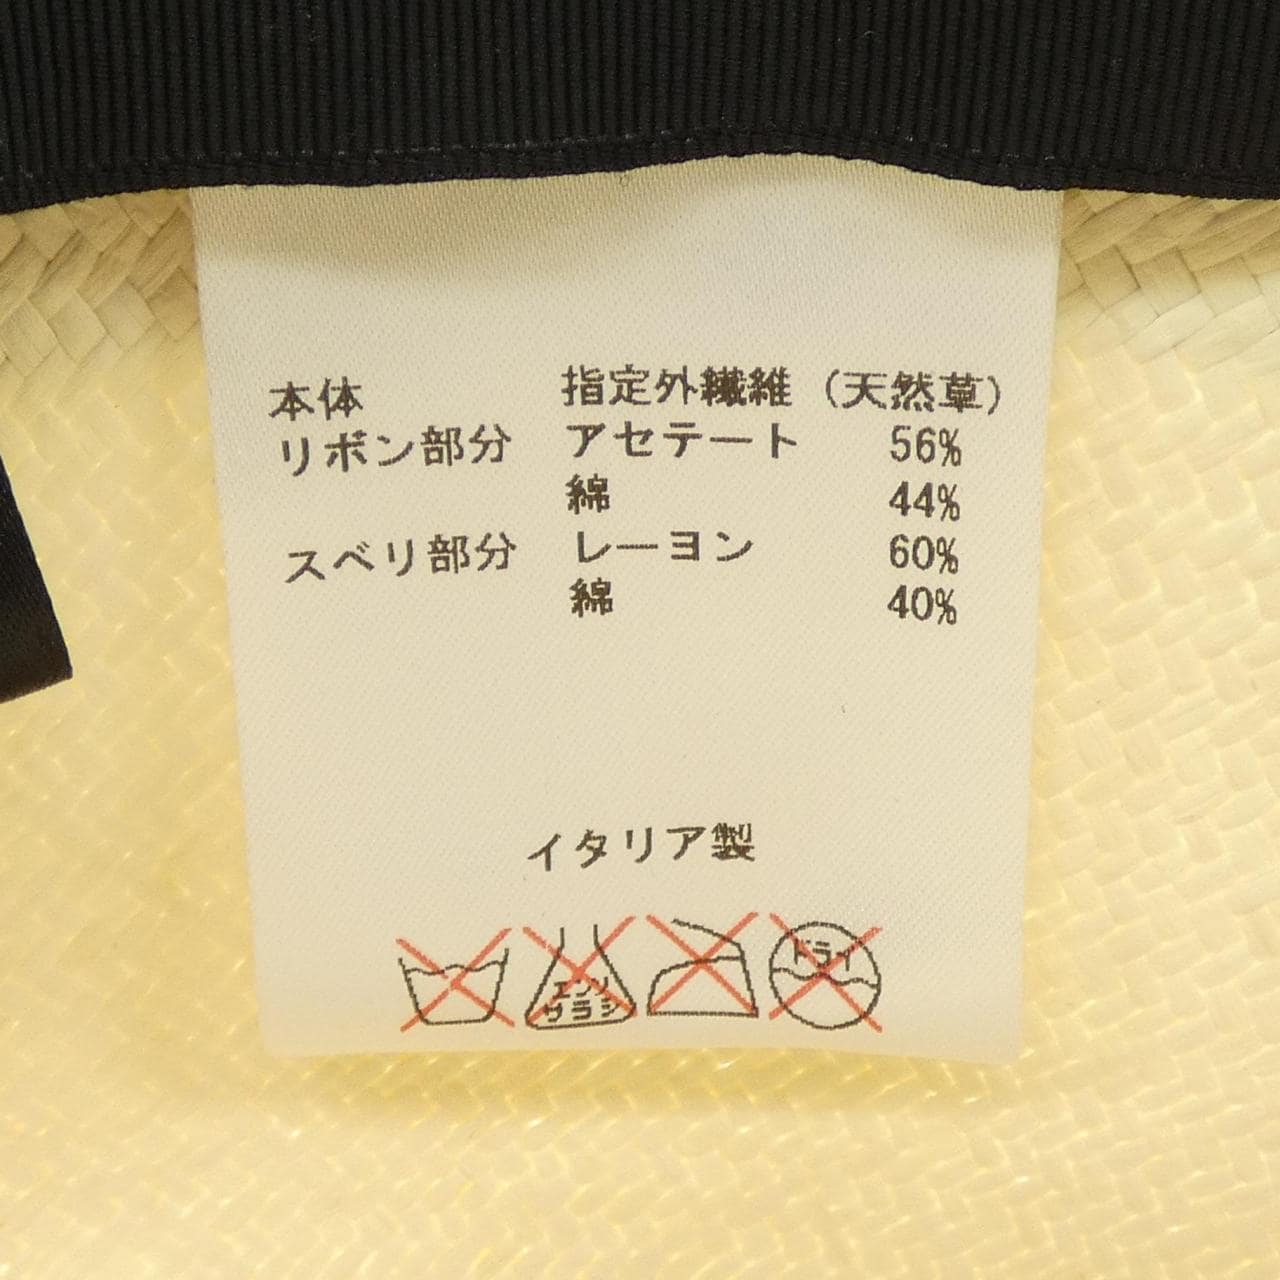 本体 指定外繊維（天然草）
リボン部分 アセテート 56%
綿 44%
スベリ部分 レーヨン 60%
綿 40%
イタリア製
エンソ
サラシ
ドライ